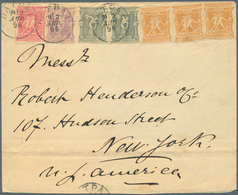 Messrs
Robert Henderson & Co
107. Hudson Street
New York.
U.S. america